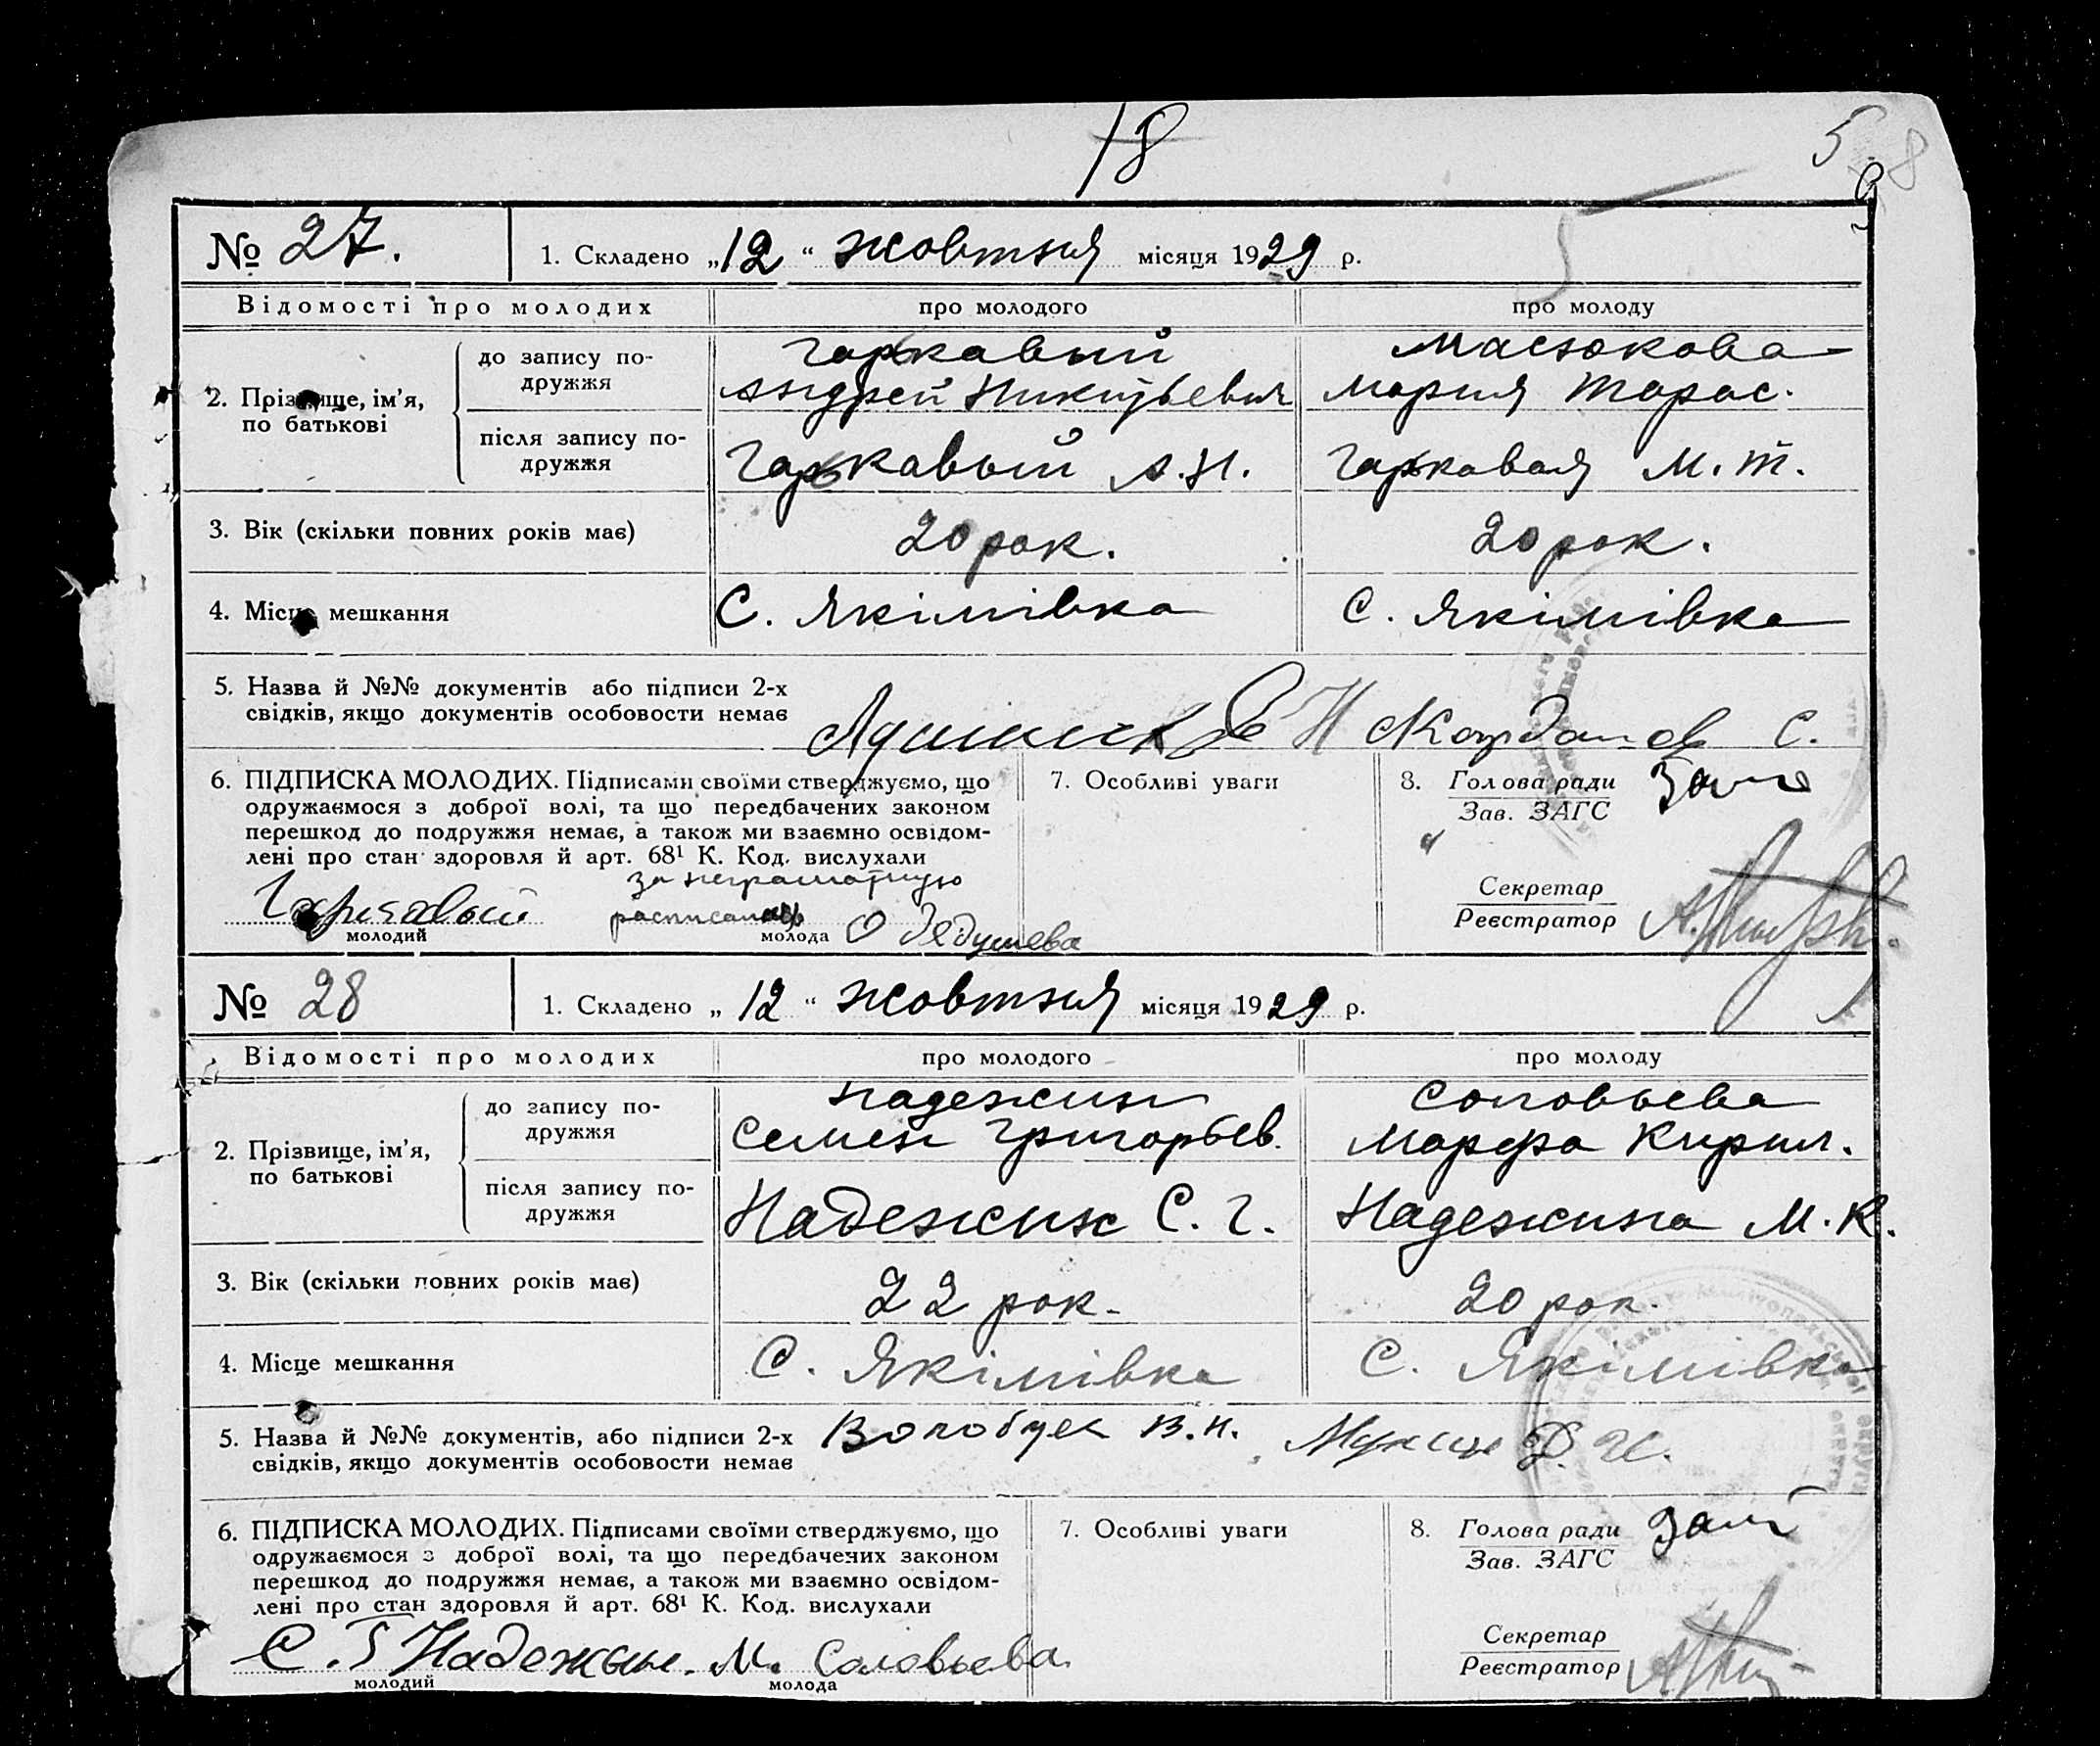 18
5
8
№ 27. 1. Складено „12“ жовтня місяця 1929 р.
Відомості про молодих про молодого про молоду
2. Прізвище, ім’я, по батькові
до запису по-
дружжя
Гаркавый Масюкова
Андрей Никитьевич Мария Тарас.
після запису по-
дружжя
Гаркавый А. Н. Гаркавая М. Т.
3. Вік (скільки повних років має) 20 рок. 20 рок.
4. Місце мешкання С. Якімівка С. Якімівка
5. Назва й №№ документів або підписи 2-х
свідків, якщо документів особовости немає
С.
6. ПІДПИСКА МОЛОДИХ. Підписами своїми стверджуємо, що
одружаємося з доброї волі, та що передбачених законом
перешкод до подружжя немає, а також ми взаємно освідом-
лені про стан здоровля й арт. 68¹ К. Код. вислухали
за неграмотную
расписалась О Дедушева
молодий молода
7. Особливі уваги
8. Голова ради
Зав. ЗАГС
Секретар
Реєстратор
№ 28 1. Складено „12“ жовтня місяця 1929 р.
Відомості про молодих про молодого про молоду
2. Прізвище, ім’я, по батькові
до запису по-
дружжя
Надежин Соловьева
Семен Григорьев. Марфа Кирил.
після запису по-
дружжя
Надежин С. Г. Надежина М. К.
3. Вік (скільки повних років має) 22 рок. 20 рок.
4. Місце мешкання С. Якімівка С. Якімівка
5. Назва й №№ документів, або підписи 2-х
свідків, якщо документів особовости немає
В. И.
6. ПІДПИСКА МОЛОДИХ. Підписами своїми стверджуємо, що
одружаємося з доброї волі, та що передбачених законом
перешкод до подружжя немає, а також ми взаємно освідом-
лені про стан здоровля й арт. 68¹ К. Код. вислухали
С. Г Надежин. М. Соловьева
молодий молода
7. Особливі уваги
8. Голова ради Зам
Зав. ЗАГС
Секретар
Реєстратор